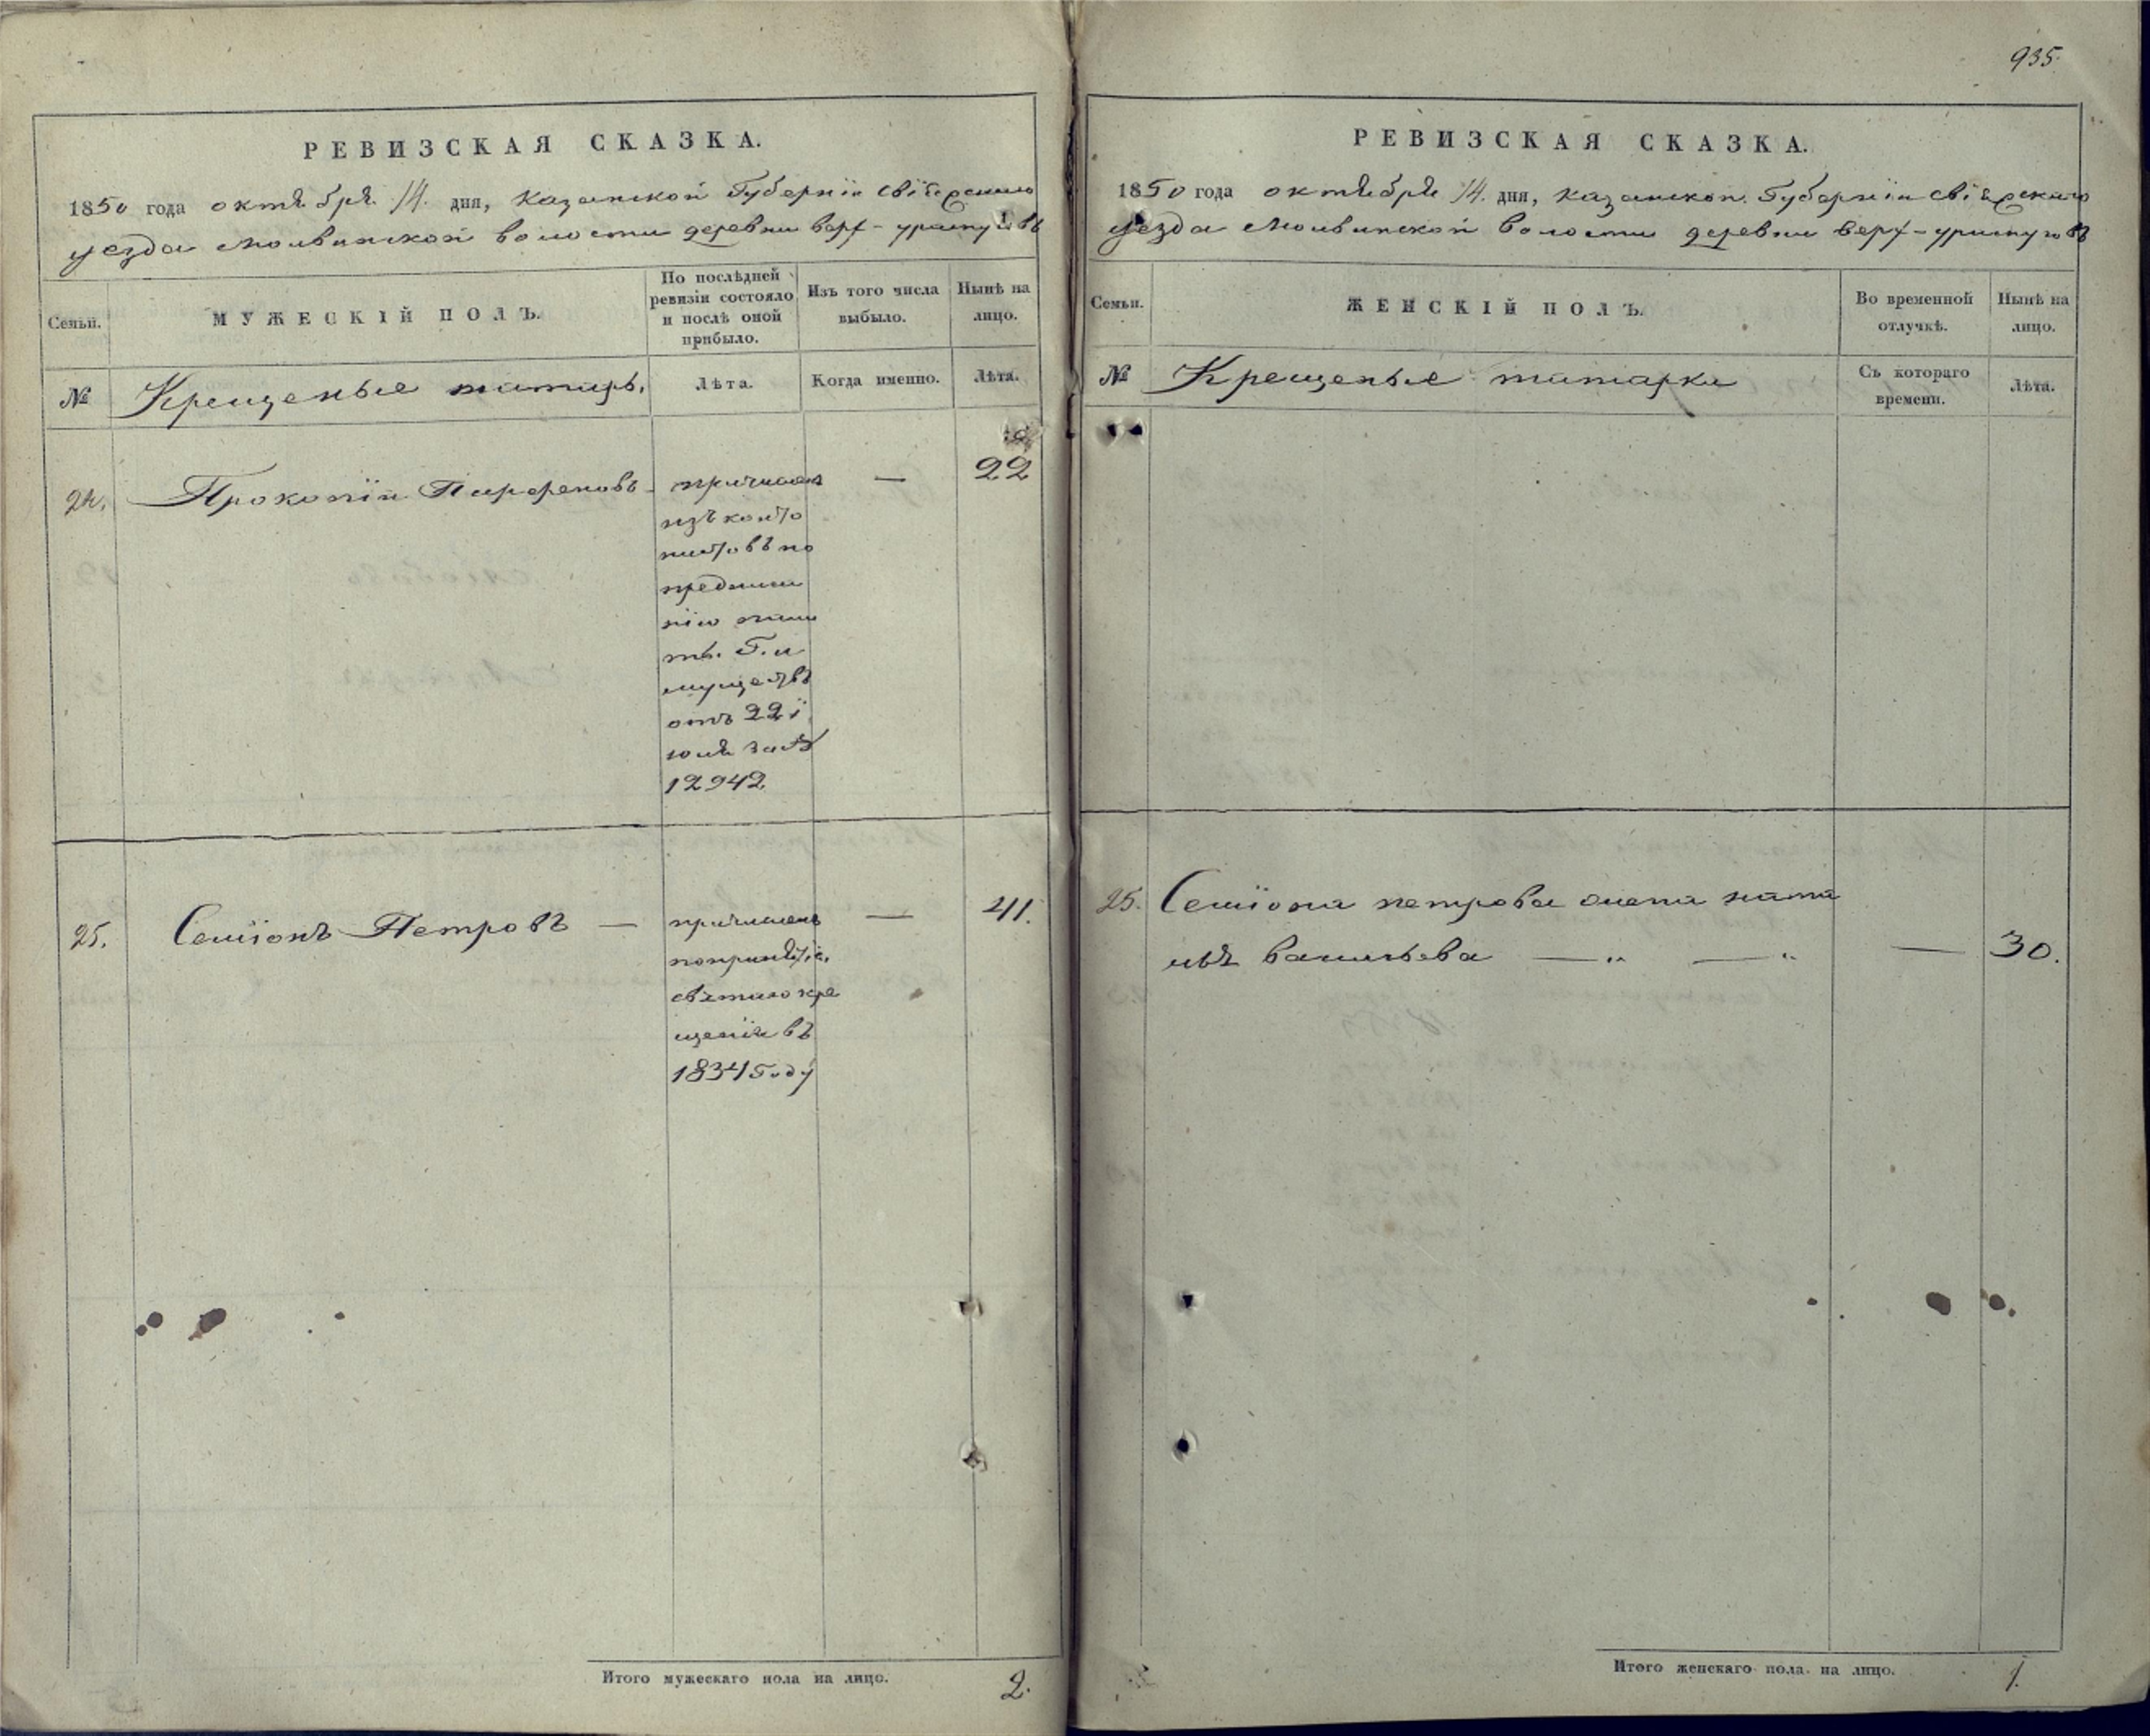 935.
РЕВИЗСКАЯ СКАЗКА.
1850 года октября 14. дня, Казанской Губернїи свіяжскаго
уезда Молвинской волости деревни верх-
Семьи.
МУЖЕСКІЙ ПОЛЪ.
По послѣдней ревизіи состояло и послѣ оной прибыло.
Изъ того числа выбыло.
Нынѣ на лицо.
№
Крещеные татары.
Лѣта.
Когда именно.
Лѣта.
24.
Прокопїи Парфеновъ
—
22
причислен
изъ канто
нистовъ по
предписа
нїю пала
ты. Г. и
муществъ
отъ 22 ї
юля за №
12942
25.
Семїонъ Петровъ —
причисленъ
по принятїи
святаго кре
щенїя въ
1834 году
—
41.
Итого мужескаго пола на лицо.
2.
РЕВИЗСКАЯ СКАЗКА.
1850 года октября 14. дня, Казанской Губернїи свіяжскаго
уезда Молвинской волости деревни верх-
Семьи.
ЖЕНСКІЙ ПОЛЪ.
Во временной отлучкѣ.
Нынѣ на лицо.
№
Крещеные татарки
Съ котораго времени.
Лѣта.
25.
Семїона петрова жена ната
лья Васильева — „ — „
—
30.
Итого женскаго пола на лицо.
1.